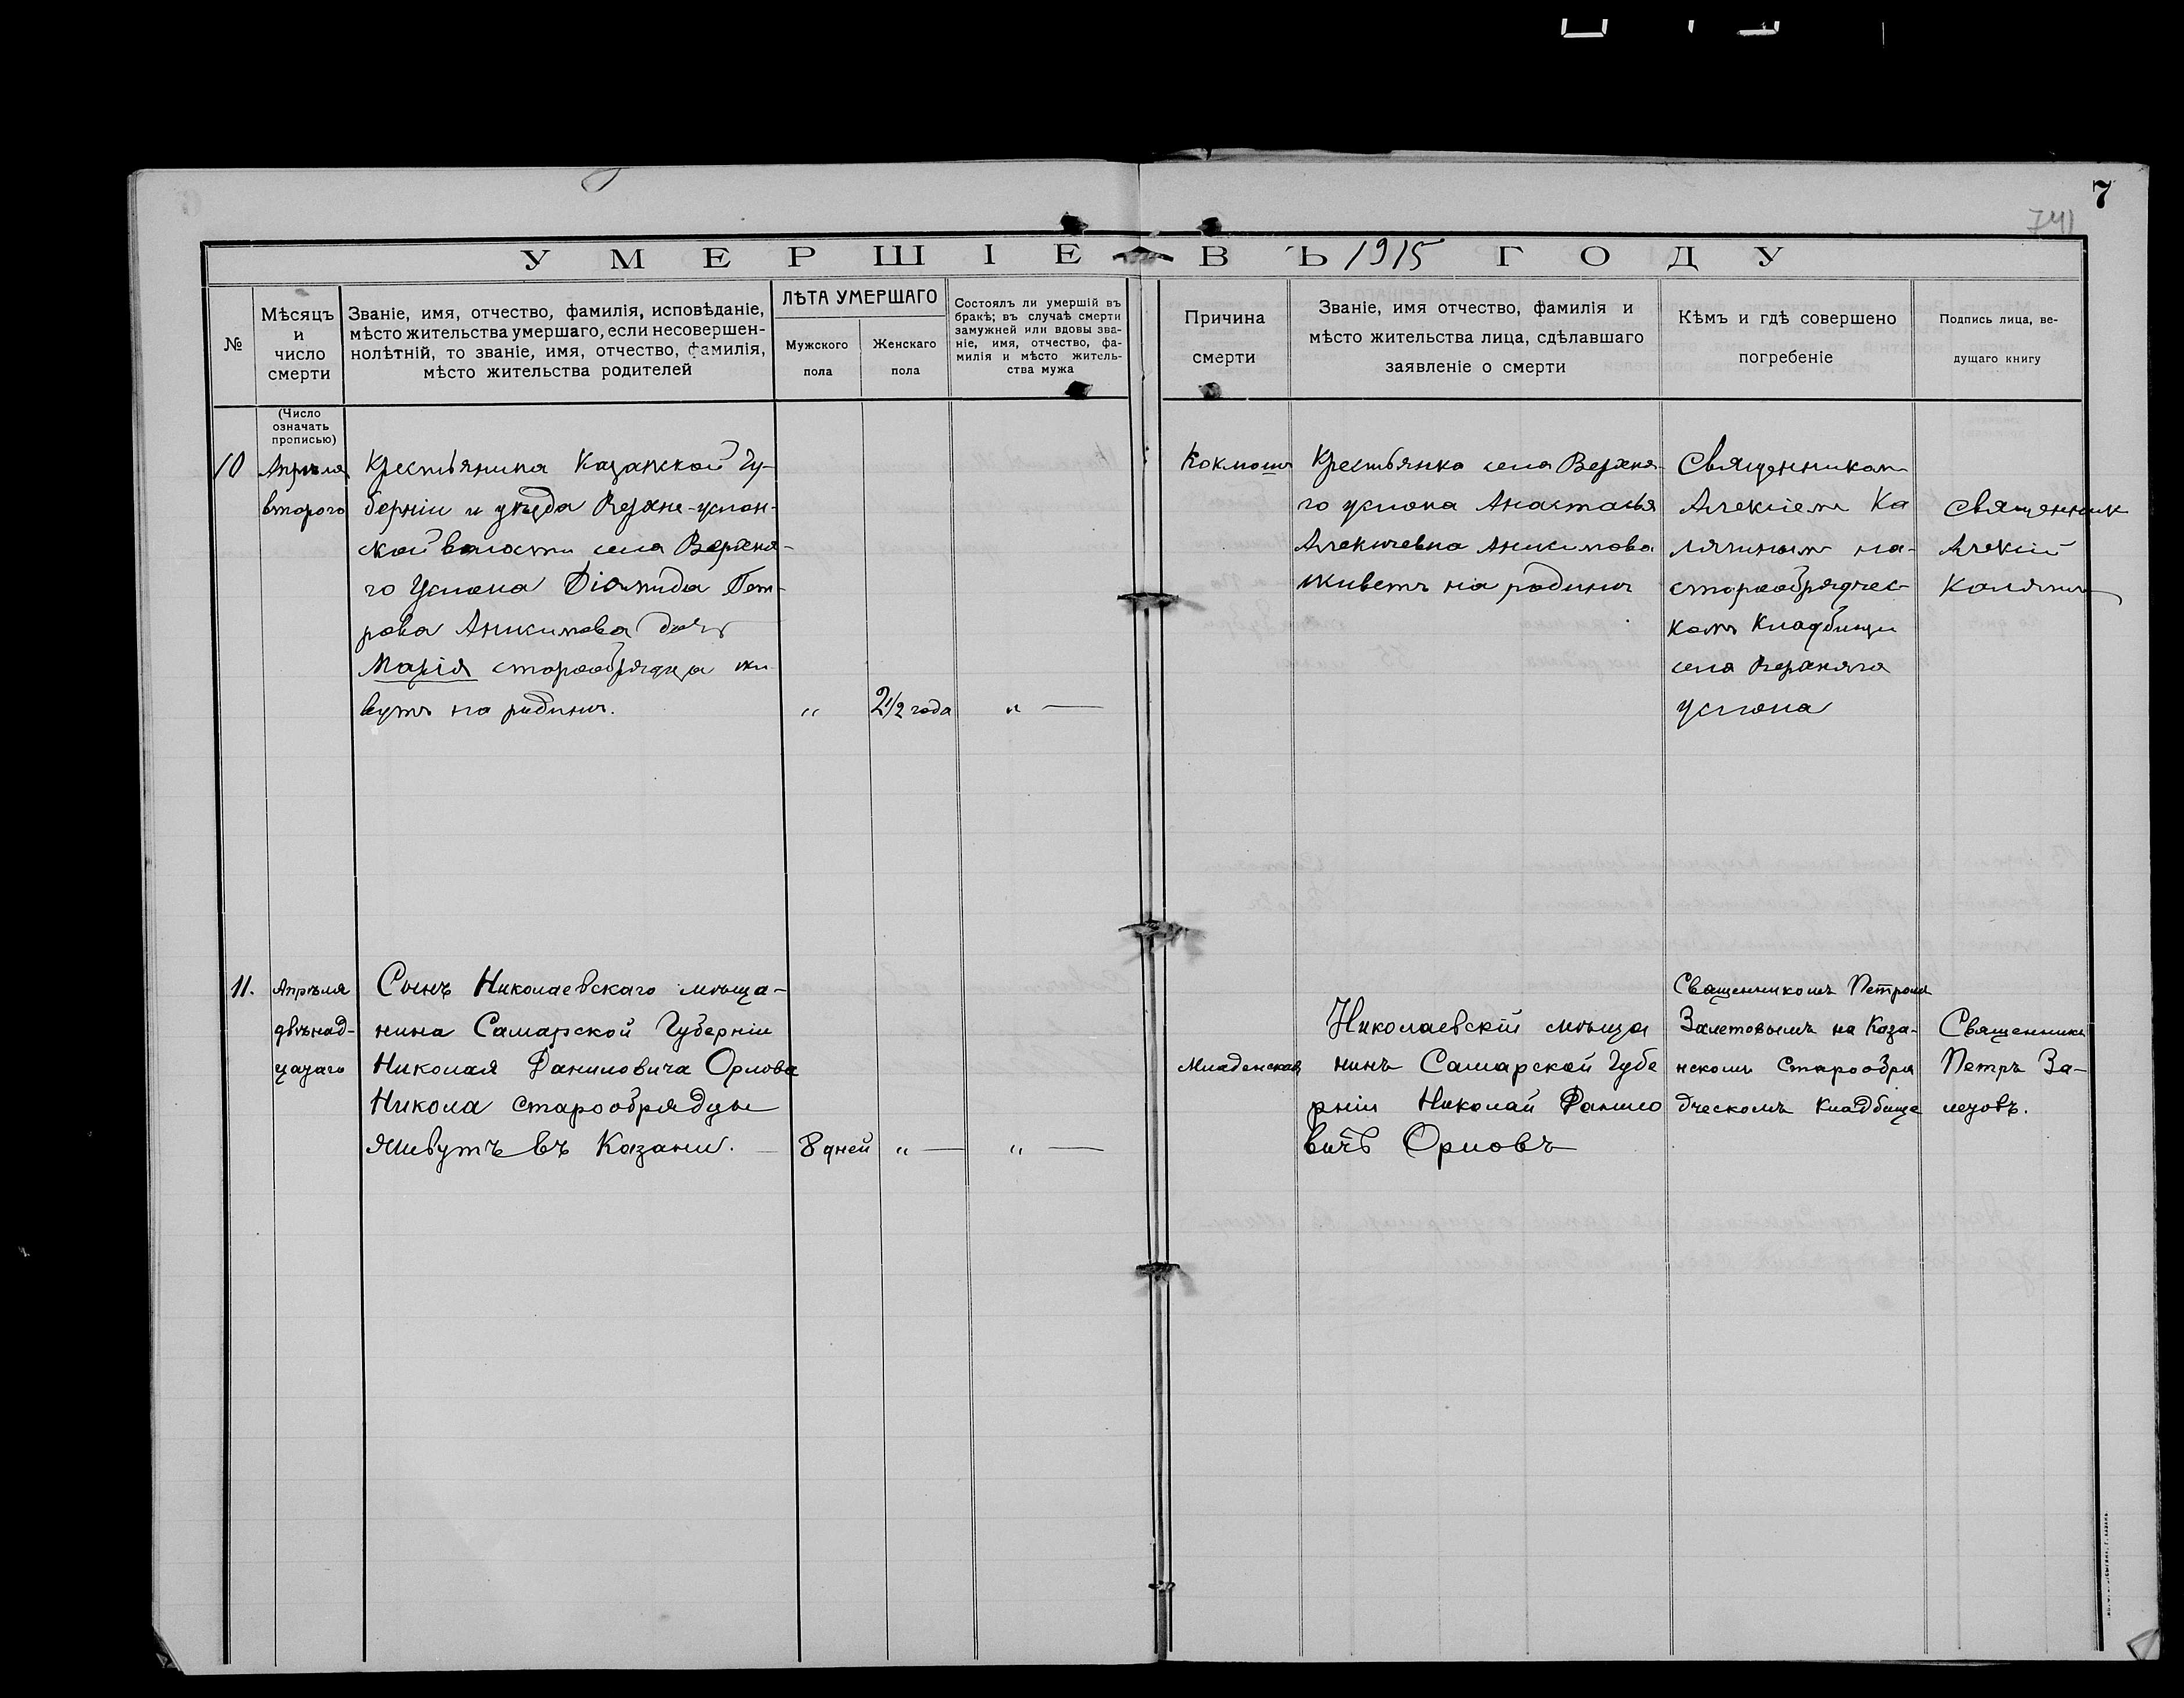 7
741
УМЕРШІЕ ВЪ 1915 ГОДУ
№
Мѣсяцъ
и
число
смерти
Званіе, имя, отчество, фамилія, исповѣданіе,
мѣсто жительства умершаго, если несовершен-
нолѣтній, то званіе, имя, отчество, фамилія,
мѣсто жительства родителей
ЛѢТА УМЕРШАГО
Мужского
пола
Женскаго
пола
Состоялъ ли умершій въ
бракѣ; въ случаѣ смерти
замужней или вдовы зва-
ніе, имя, отчество, фа-
милія и мѣсто житель-
ства мужа
Причина
смерти
Званіе, имя отчество, фамилія и
мѣсто жительства лица, сдѣлавшаго
заявленіе о смерти
Кѣмъ и гдѣ совершено
погребеніе
Подпись лица, ве-
дущаго книгу
(Число
означать
прописью)
10
Апрѣля
второго
Крестьянина Казанской Гу-
берніи и уѣзда Верхне-услон-
ской волости села Верхня-
го Услона Діомида Пет-
рова Аникимова дочь
Марія старообрядца жи-
вутъ на родинѣ.
„
2 1/2 года
„ —
Коклюшъ
Крестьянка села Верхня-
го услона Анастасія
Алексіевна Аникимова
живетъ на родинѣ
Священникомъ
Алексіемъ Ка
лягинымъ на-
старообрядчес-
комъ Кладбищѣ
села Верхняго
услона
Священник
Алексій
Калягинъ
11.
Апрѣля
двѣнад-
цатаго
Сынъ Николаевскаго мѣща-
нина Самарской Губерніи
Николая Даниловича Орлова
Никола старообрядцы
Живутъ въ Казани.
8 дней
„ —
„ —
Младенская
Николаевскій мѣща
нинъ Самарской Губе
рніи Николай Данило
вичъ Орловъ
Священникомъ Петромъ
Залетовымъ на Каза-
нскомъ Старообря
дческомъ Кладбище
Священникъ
Петръ За-
летовъ.